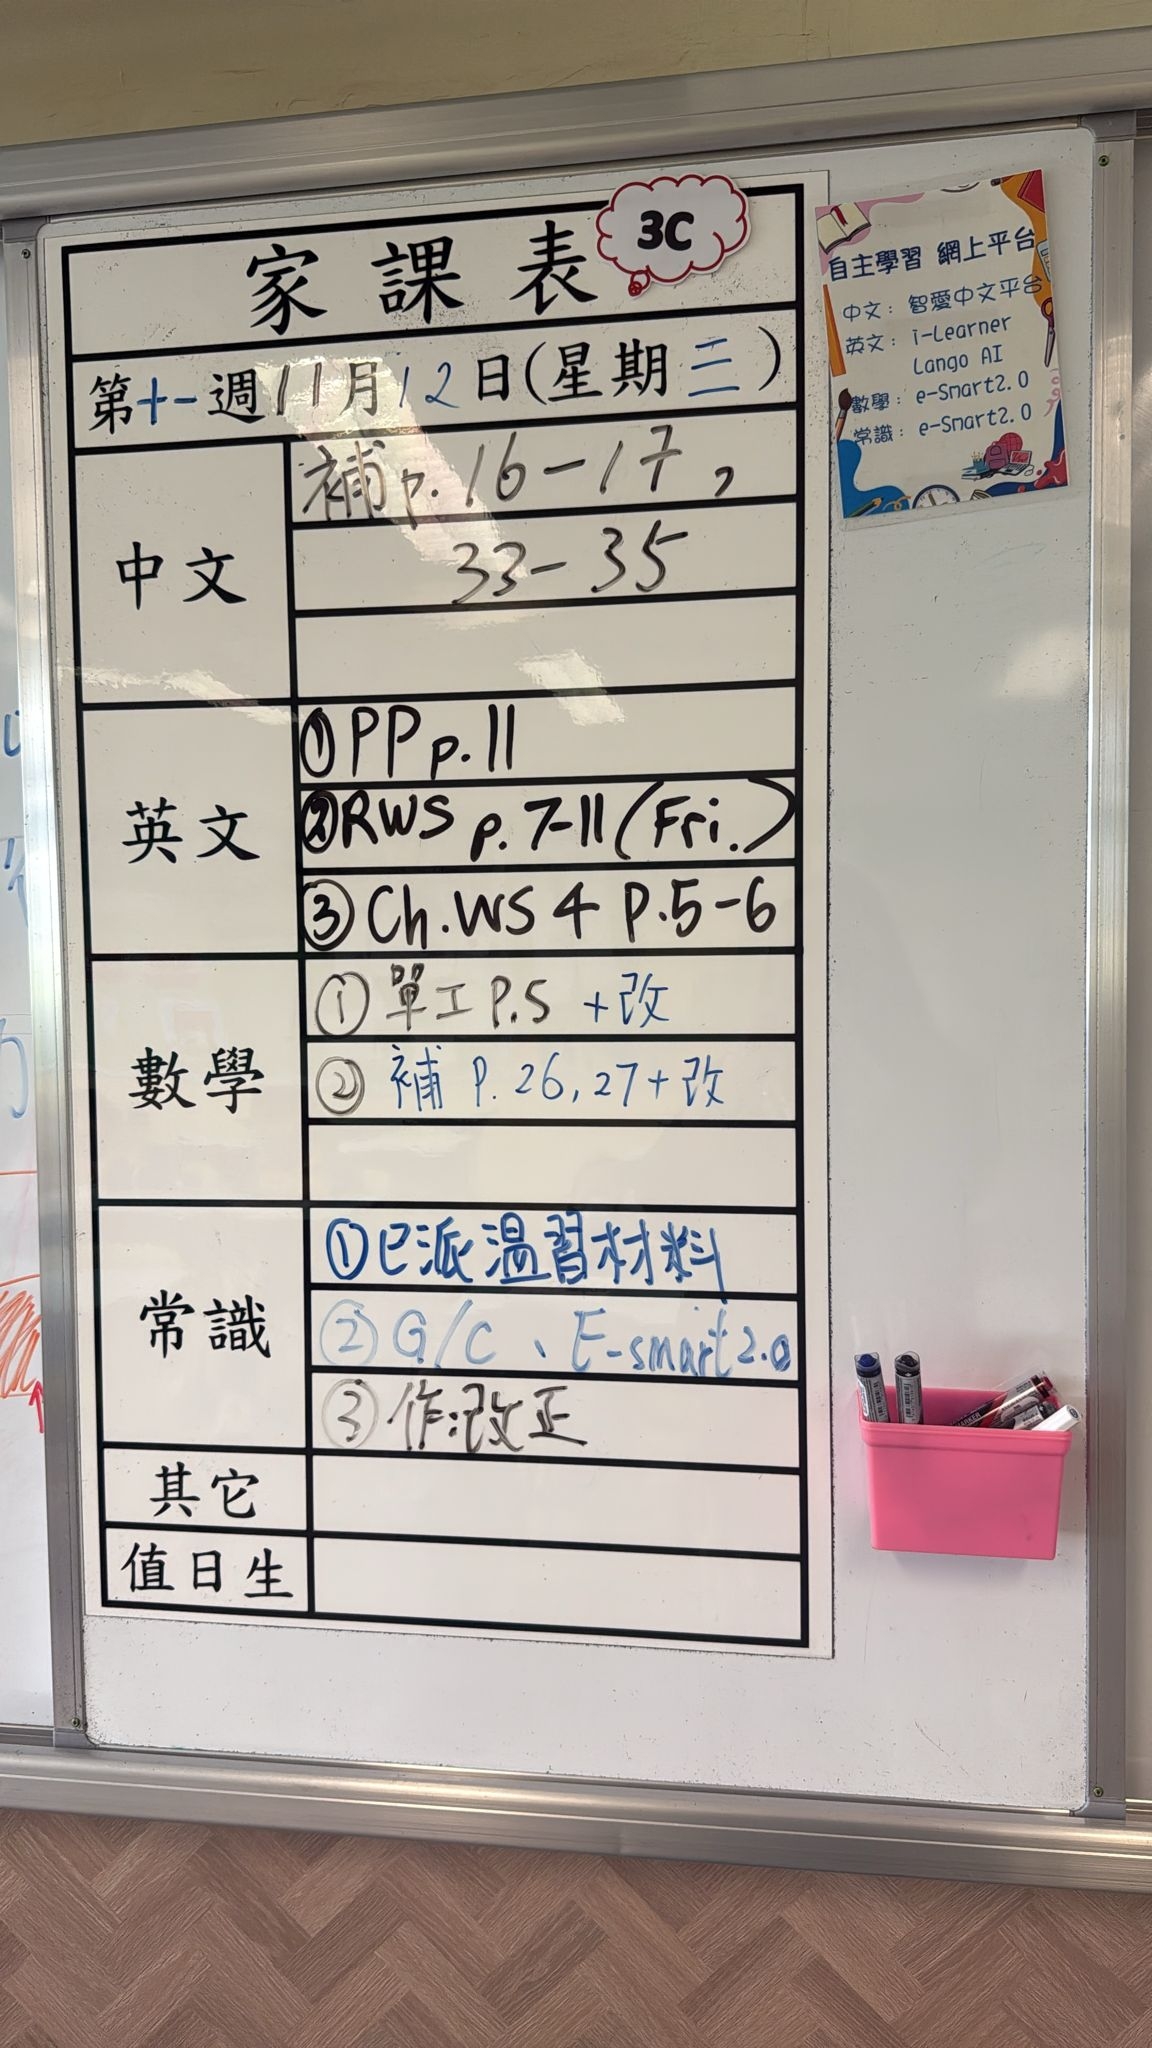 家課表
3C
第十一週11月12日(星期三)
中文
補p.16-17,
33-35
英文
①PP p.11
②RWS p.7-11(Fri.)
③Ch.WS 4 P.5-6
數學
①單工P.5 +改
②補 P.26,27+改
常識
①已派溫習材料
②G/C、E-smart2.0
③作:改正
其它
值日生
自主學習 網上平台
中文：智愛中文平台
英文：i-Learner
Lango AI
數學：e-Smart2.0
常識：e-Smart2.0